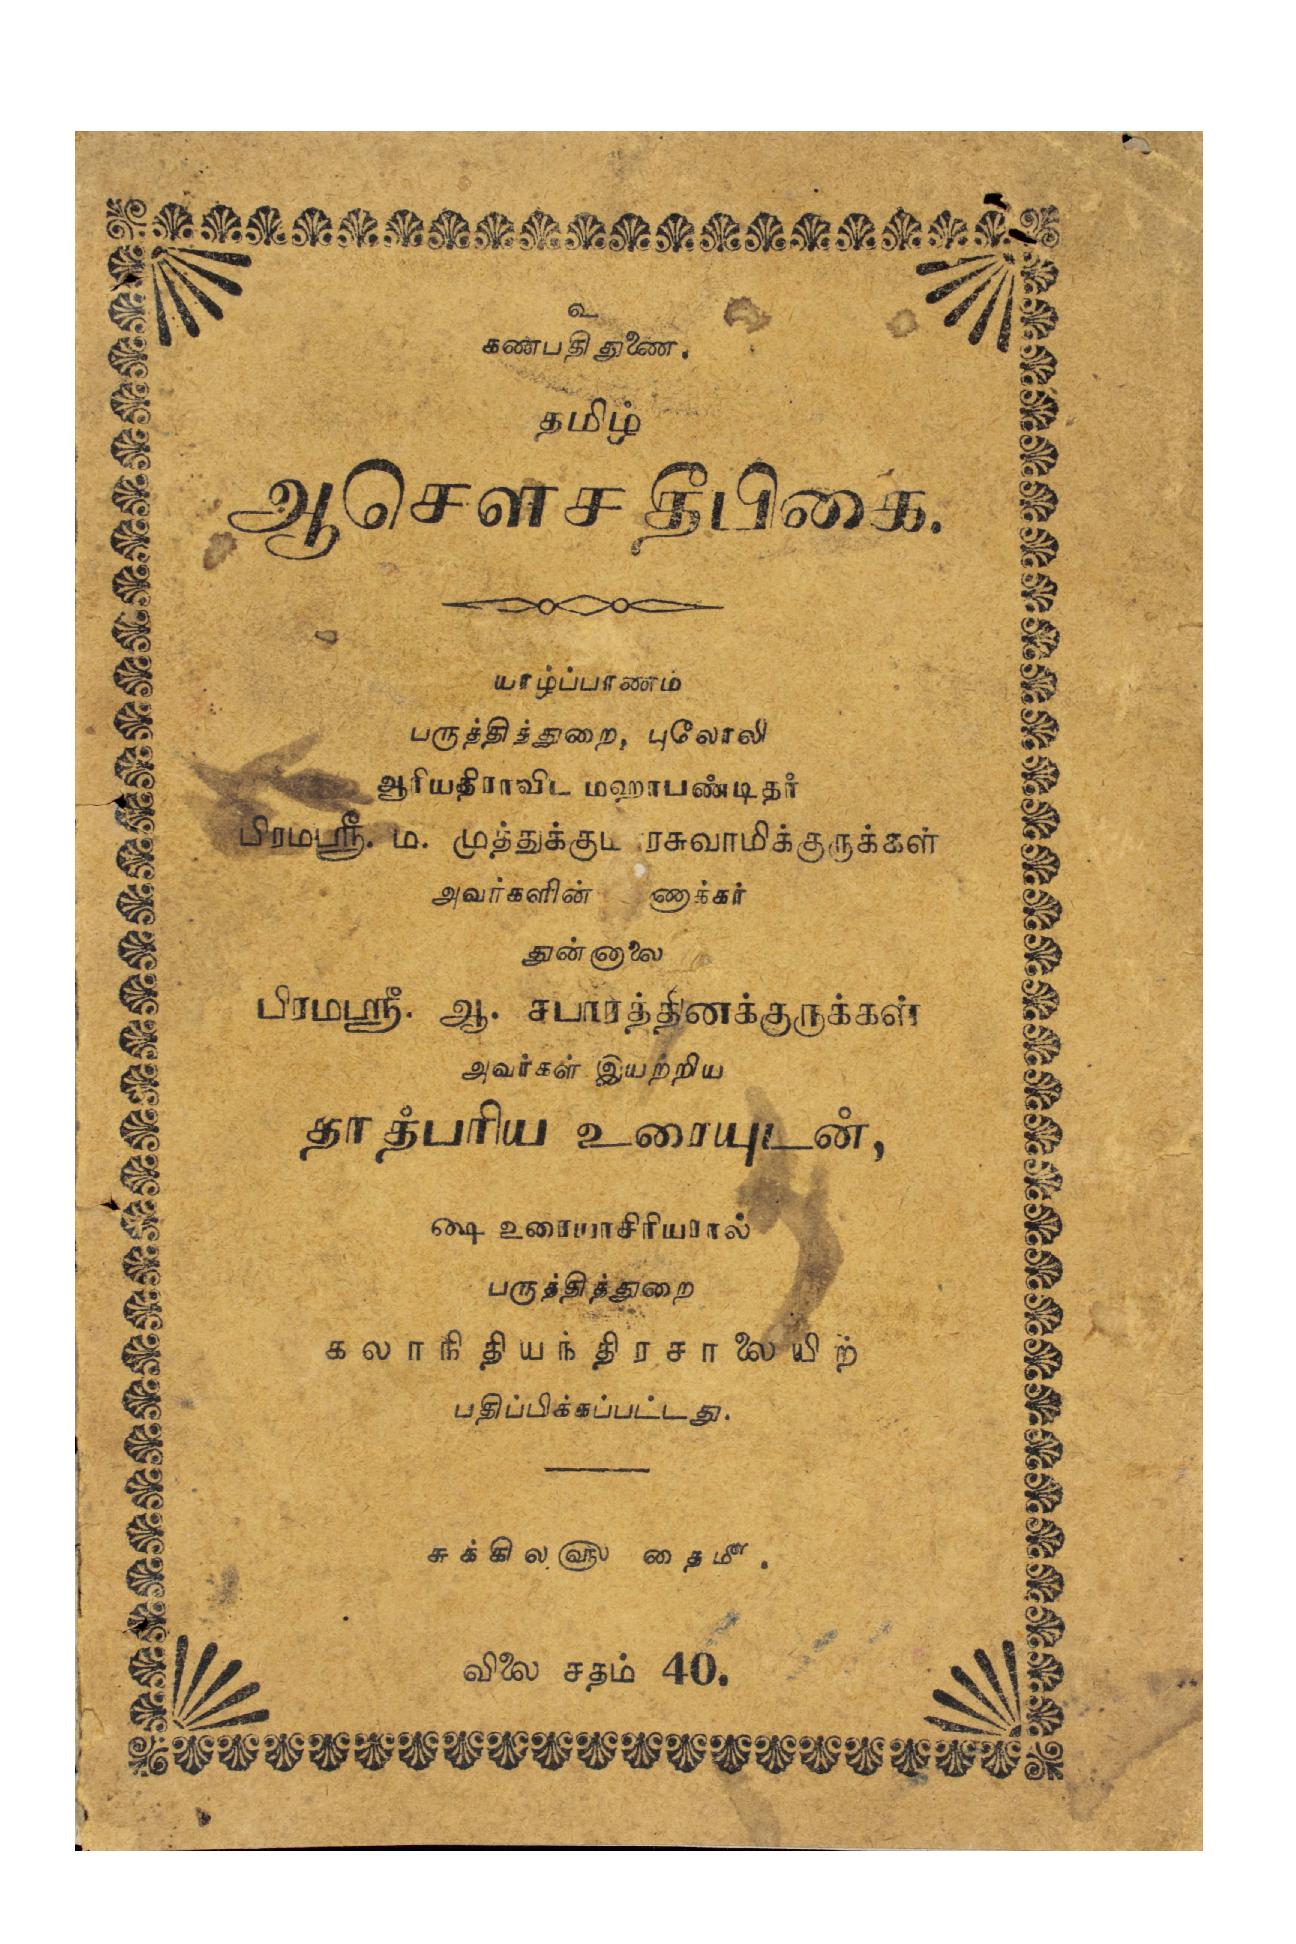 உ
கணபதி துணை.
தமிழ்
ஆசௌச தீபிகை.
யாழ்ப்பாணம்
பருத்தித்துறை, புலோலி
ஆரியதிராவிட மஹாபண்டிதர்
பிரமஸ்ரீ. ம. முத்துக்கு ரசுவாமிக்குருக்கள்
அவர்களின் ணக்கர்
துன்னாலை
பிரமஸ்ரீ. ஆ. சபாரத்தினக்குருக்கள்
அவர்கள் இயற்றிய
தாத்பரிய உரையுடன்,
ஷை உரையாசிரியரால்
பருத்தித்துறை
கலாநிதியந்திரசாலையிற்
பதிப்பிக்கப்பட்டது.
சுக்கில௵ தை௴.
விலை சதம் 40.